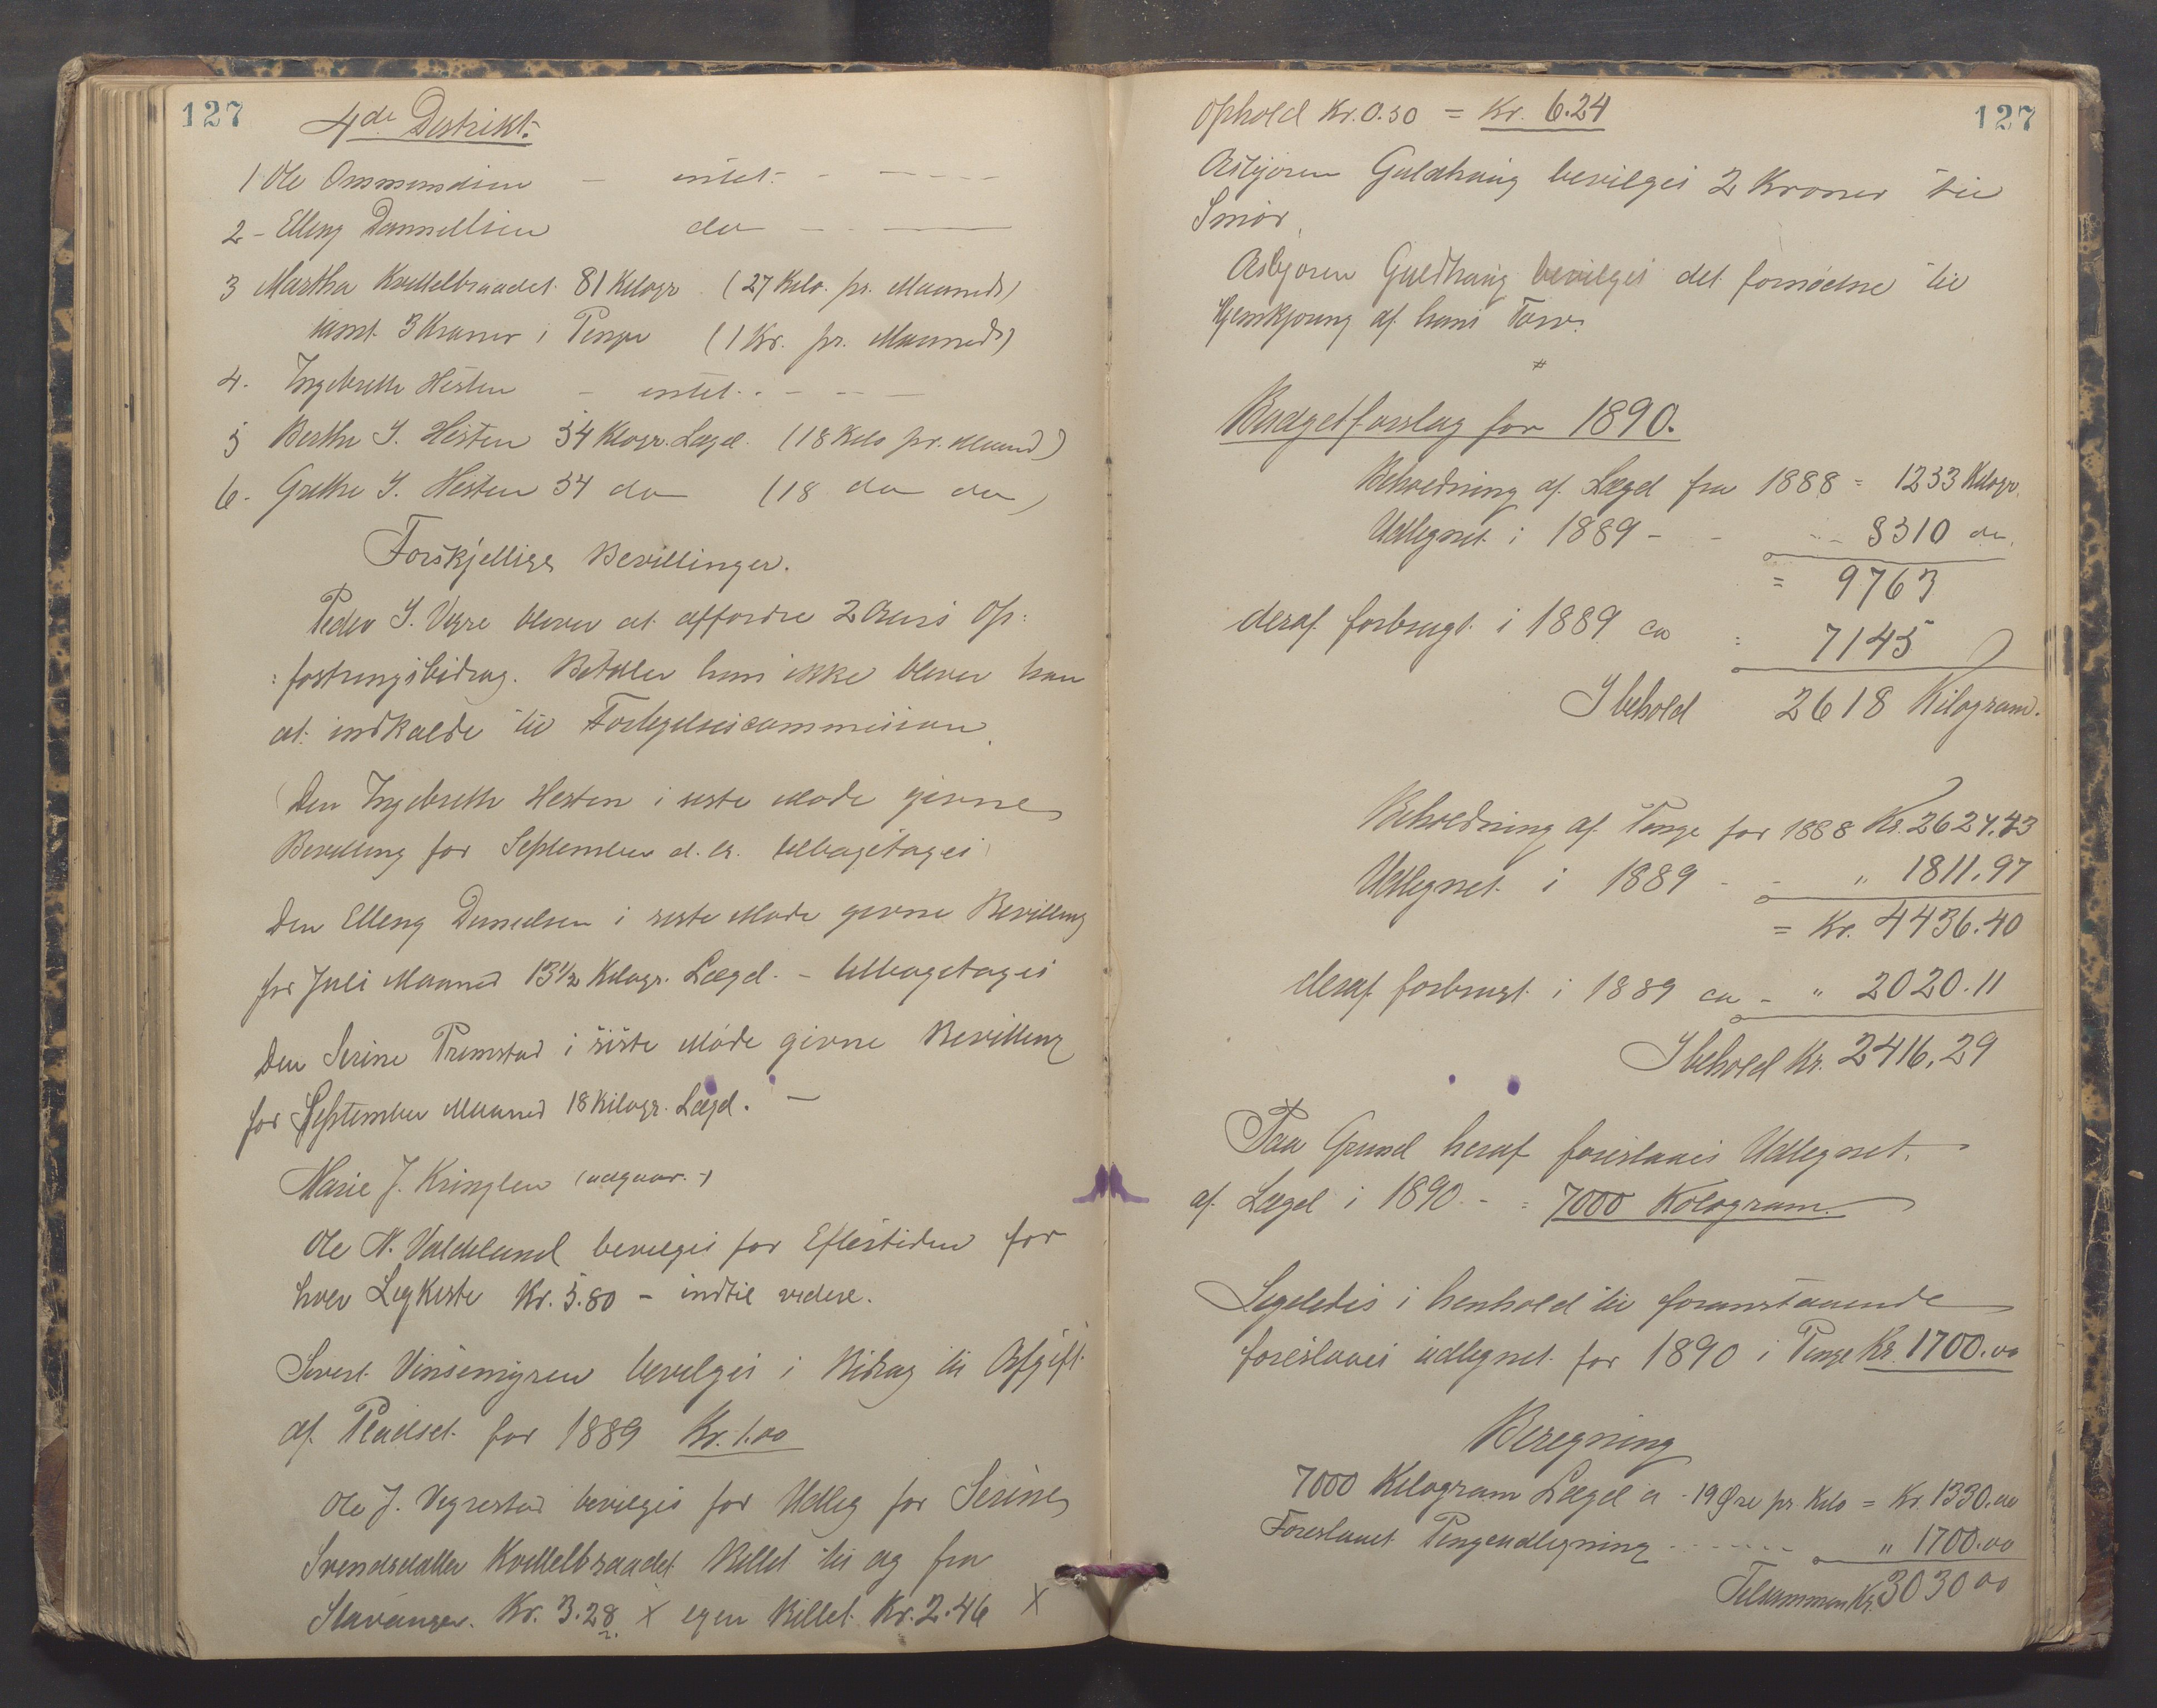 127
4de Distrikt.
1 Ole Ommundsen - intet - - - - -
2 - Elling Danielsen do - - -
3 Martha Kvittelbraadet 81 Kilogr (27 Kilo. pr. Maaned)
samt 3 Kroner i Penge (1 Kr. pr. Maaned)
4. Ingebreth Hesten - intet. - - -
5 Berthe I. Hesten 54 Kilogr. Lægd. (18 Kilo pr. Maaned)
6. Grethe I. Hesten 54 do (18 do do)
Forskjellige Bevillinger.
Peder I. Vigre bliver at affordre 2 Aars Op:
:fostringsbidrag. Betaler han ikke bliver han
at indkalde til Forligelsescommission.
(Den Ingebreth Hesten i siste Møde givne
Bevilling for September d. A. tilbagetages)
Den Elling Danielsen i siste Møde givne Bevilling
for Juli Maaned 13½ Kilogr. Lægd. - tilbagetages
Den Serine Tremstad i siste Møde givne Bevilling
for September Maaned 18 Kilogr. Lægd. -
Marie J. Kringlen (udgaar.-)
Ole N. Valdeland bevilges for Eftertiden for
hver Ligkiste Kr. 5.80 - indtil videre.
Sivert Vinsemyren bevilges i Bidrag til Afgift
af Pladset for 1889 Kr. 1.00
Ole J. Vigrestad bevilges for Udlæg for Serine
Svendsdatter Kvittelbraadet Billet til og fra
Stavanger. Kr. 3.28 X egen Billet Kr. 2.46 X
127
Ophold Kr. 0.50 = Kr. 6.24
Asbjøren Guldhaug bevilges 2 Kroner til
Smør.
Asbjøren Guldhaug bevilges det fornødne til
Hjemkjøring af hans Torv.
Budgetforslag for 1890.
Beholdning af Lægd fra 1888 = 1233 Kilogr.
Udlignet i 1889 - - - 8310 do.
= 9763
deraf forbrugt i 1889 ca = 7145
Ibehold 2618 Kilogram.
Beholdning af Penge for 1888 Kr. 2624.43
Udlignet i 1889 - - " 1811.97
= Kr. 4436.40
deraf forbrugt i 1889 ca - " 2020.11
Ibehold Kr. 2416.29
Paa Grund heraf foreslaaes Udlignet
af Lægd i 1890 - = 7000 Kilogram.
Ligeledes i henhold til foranstaaende
foreslaaes udlignet for 1890 i Penge Kr. 1700.00
Beregning
7000 Kilogram Lægd a - 19 Øre pr. Kilo = Kr. 1330.00
Foreslaaet Pengeudligning - - - - - - " 1700.00
Tilsammen Kr. 3030 00